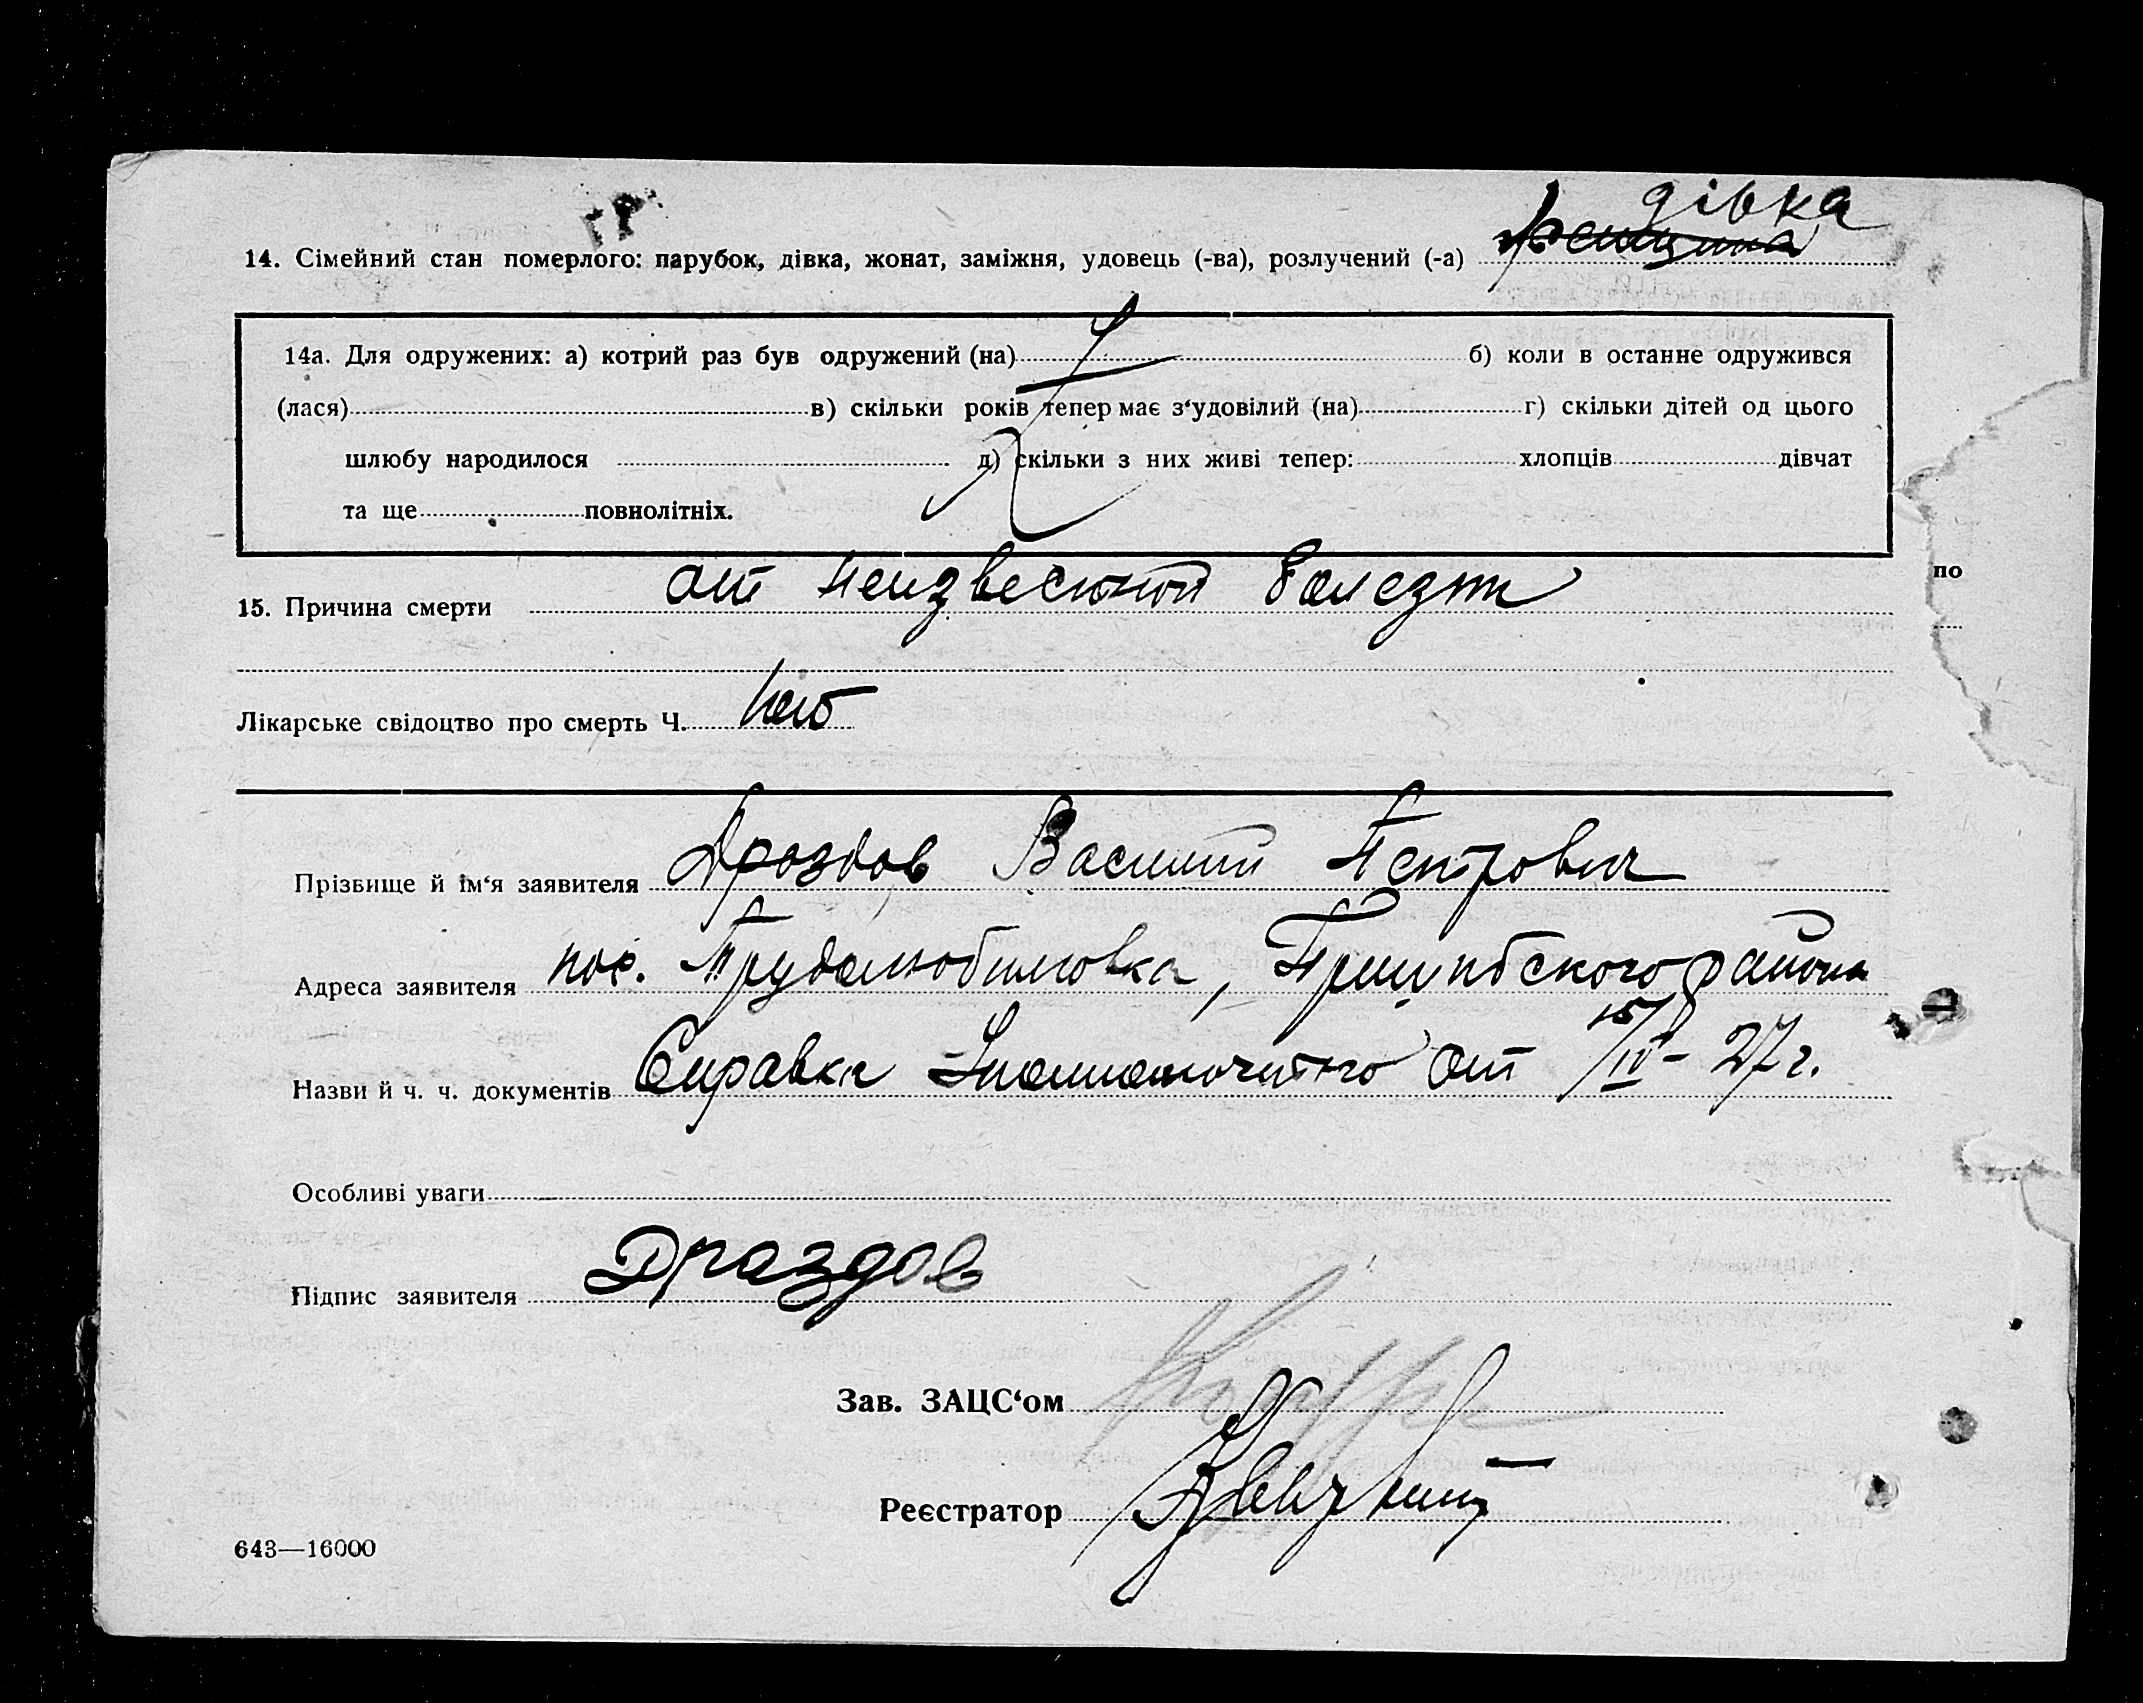 дівка
14. Сімейний стан померлого: парубок, дівка, жонат, заміжня, удовець (-ва), розлучений (-а) женщина
14а. Для одружених: а) котрий раз був одружений (на) б) коли в останне одружився
(лася) в) скільки років тепер має з‘удовілий (на) г) скільки дітей од цього
шлюбу народилося д) скільки з них живі тепер: хлопців дівчат
та ще повнолітніх.
по
15. Причина смерти от неизвестной болезни
Лікарське свідоцтво про смерть Ч. нет
Прізвище й ім‘я заявителя Дроздов Василий Петрович
Адреса заявителя пос. Трудолюбимовка, Пришибского района
Назви й ч. ч. документів Справка Уполномоченного от 15/IV - 27 г.
Особливі уваги
Підпис заявителя Драздов
Зав. ЗАЦС‘ом
Реєстратор
643—16000